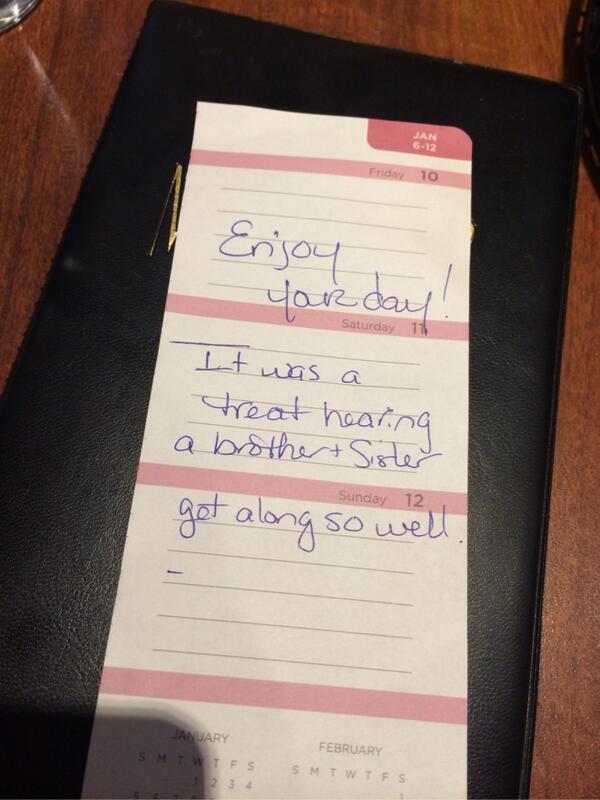 JAN
6-12
Friday 10
Enjoy
your day!
Saturday 11
It was a
treat hearing
a brother + Sister
Sunday 12
get along so well.
-
JANUARY
FEBRUARY
S M T W T F S
S M T W T F S
1 2 3 4
1
5 6 7 8